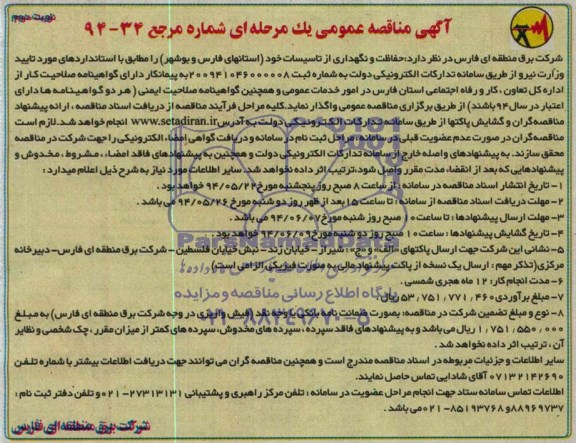 نوبت دوم
آگهی مناقصه عمومی یك مرحله ای شماره مرجع ۳۴-۹۴
شرکت برق منطقه ای فارس در نظر دارد:حفاظت و نگهداری از تاسیسات خود (استانهای فارس و بوشهر) را مطابق با استانداردهای مورد تایید
وزارت نیرو از طریق سامانه تدارکات الکترونیکی دولت به شماره ثبت ۲۰۰۹۴۱۰۴۶۰۰۰۰۰۸ به پیمانکار دارای گواهینامه صلاحیت کار از
اداره کل تعاون ، کار و رفاه اجتماعی استان فارس در امور خدمات عمومی و همچنین گواهینامه صلاحیت ایمنی ( هر دو گواهینامه ها دارای
اعتبار در سال ۹۴ باشند) از طریق برگزاری مناقصه عمومی واگذار نماید.کلیه مراحل فرآیند مناقصه از دریافت اسناد مناقصه ، ارائه پیشنهاد
مناقصه گران و گشایش پاکتها از طریق سامانه تدارکات الکترونیکی دولت به آدرس www.setadiran.ir انجام خواهد شد.لازم است
مناقصه گران در صورت عدم عضویت قبلی در سامانه ، مراحل ثبت نام در سامانه و دریافت گواهی امضاء الکترونیکی را جهت شرکت در مناقصه
محقق سازند. به پیشنهادهای واصله خارج از سامانه تدارکات الکترونیکی دولت و همچنین به پیشنهادهای فاقد امضاء ، مشروط ، مخدوش و
پیشنهادهایی که بعد از انقضاء مدت مقرر واصل شود،ترتیب اثر داده نخواهد شد. سایر اطلاعات مورد نیاز به شرح ذیل اعلام میدارد :
۱- تاریخ انتشار اسناد مناقصه در سامانه : از ساعت ۸ صبح روز پنجشنبه مورخ ۹۴/۰۵/۲۲ خواهد بود .
۲- مهلت دریافت اسناد مناقصه از سامانه : تا ساعت ۱۵ بعد از ظهر روز دوشنبه مورخ ۹۴/۰۵/۲۶ می باشد .
۳- مهلت ارسال پیشنهادها : تا ساعت ۱۰ صبح روز شنبه مورخ ۹۴/۰۶/۰۷ می باشد .
۴- تاریخ گشایش پیشنهادها : ساعت ۱۰ صبح روز دوشنبه مورخ ۹۴/۰۶/۰۹ خواهد بود .
۵- نشانی این شرکت جهت ارسال پاکتهای «الف» و «ج» : شیراز - خیابان زند - نبش خیابان فلسطین - شرکت برق منطقه ای فارس - دبیرخانه
مرکزی(تذکر مهم : ارسال یک نسخه از پاکت پیشنهاد مالی به صورت فیزیکی الزامی است)
۶- مدت انجام کار: ۱۲ ماه هجری شمسی .
۷- مبلغ برآوردی ۵۳,۷۵۱,۷۷۱,۴۶۰ ریال می باشد .
۸- نوع و مبلغ تضمین شرکت در مناقصه: بصورت ضمانت نامه بانکی یا وجه نقد (فیش واریزی در وجه شرکت برق منطقه ای فارس) به مبلغ
۱,۷۵۱,۵۵۰,۰۰۰ ریال می باشد و به پیشنهادهای فاقد سپرده ، سپرده های مخدوش، سپرده های کمتر از میزان مقرر ، چک شخصی و نظایر
آن ، ترتیب اثر داده نخواهد شد .
سایر اطلاعات و جزئیات مربوطه در اسناد مناقصه مندرج است و همچنین مناقصه گران می توانند جهت دریافت اطلاعات بیشتر با شماره تلفن
۰۷۱۳۲۱۴۲۶۹۰ آقای شادابی تماس حاصل نمایند.
اطلاعات تماس سامانه ستاد جهت انجام مراحل عضویت در سامانه : تلفن مرکز راهبری و پشتیبانی ۲۷۳۱۳۱۳۱-۰۲۱ و تلفن دفتر ثبت نام :
۸۸۹۶۹۷۳۷ و ۸۵۱۹۳۷۶۸-۰۲۱ می باشد .
شرکت برق منطقه ای فارس
ParsNamadData
پایگاه اطلاع رسانی مناقصه و مزایده
۰۲۱-۸۸۳۴۹۶۷۰-۵